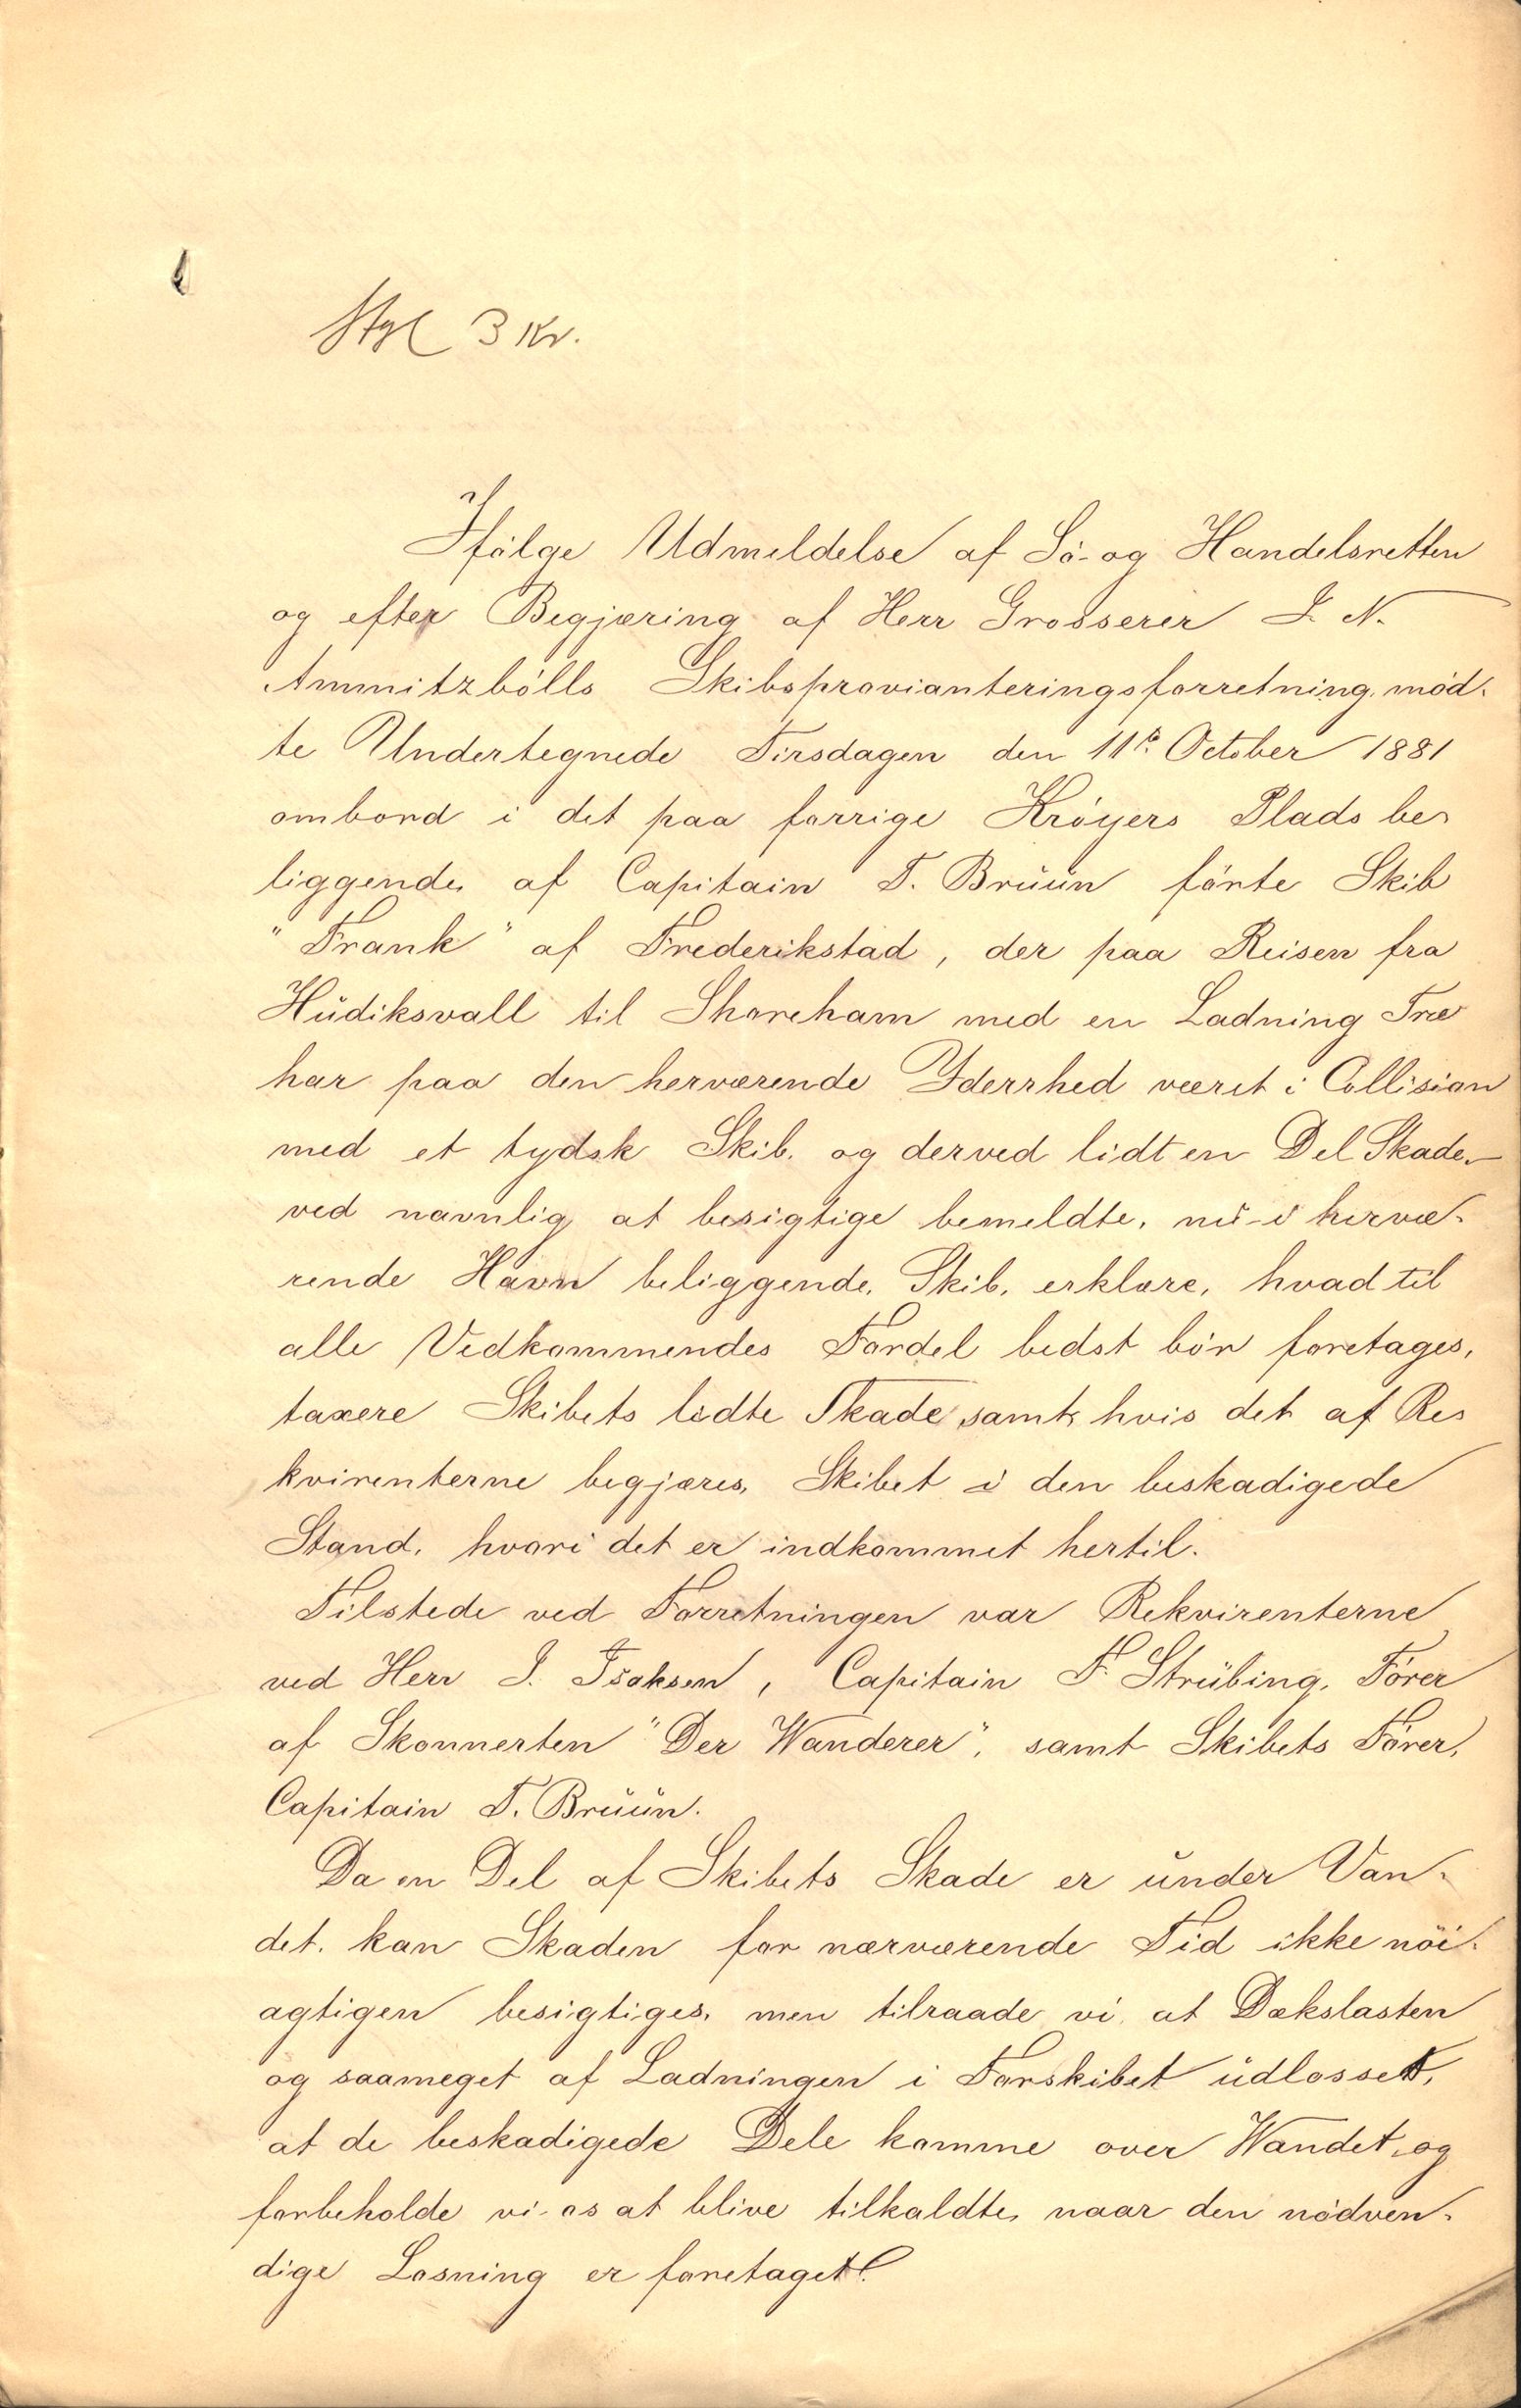 3 Kr.
Ifölge Udmeldelse af Sö- og Handelsretten
og efter Begjæring af Herr Grosserer J. N.
Ammitzbölls Skibsprovianteringsforretning, mød-
te Undertegnede Tirsdagen den 11te October 1881
ombord i det paa forrige Kröyers Plads be-
liggende, af Capitain T. Bruun förte Skib
"Frank" af Frederikstad, der paa Reisen fra
Hudiksvall til Shoreham med en Ladning Træ
har paa den herværende Yderrhed været i Collision
med et tydsk Skib, og derved lidt en Del Skade,
ved navnlig at besigtige bemeldte, nu i hervæ-
rende Havn beliggende, Skib, erklære, hvad til
alle Vedkommendes Fordel bedst bör foretages,
taxere Skibets lidte Skade samt, hvis det af Re-
kvirenterne begjæres, Skibet i den beskadigede
Stand, hvori det er indkommet hertil.
Tilstede ved Forretningen var Rekvirenterne
ved Herr I. Isaksen, Capitain F. Strübing, Förer
af Skonnerten "Der Wanderer", samt Skibets Förer,
Capitain T. Bruun.
Da en Del af Skibets Skade er under Van-
det, kan Skaden for nærværende Tid ikke nöi-
agtigen besigtiges, men tilraade vi, at Dækslasten
og saameget af Ladningen i Forskibet udlosset,
at de beskadigede Dele komme over Wandet, og
forbeholde vi os at blive tilkaldte, naar den nödven-
dige Losning er foretaget.